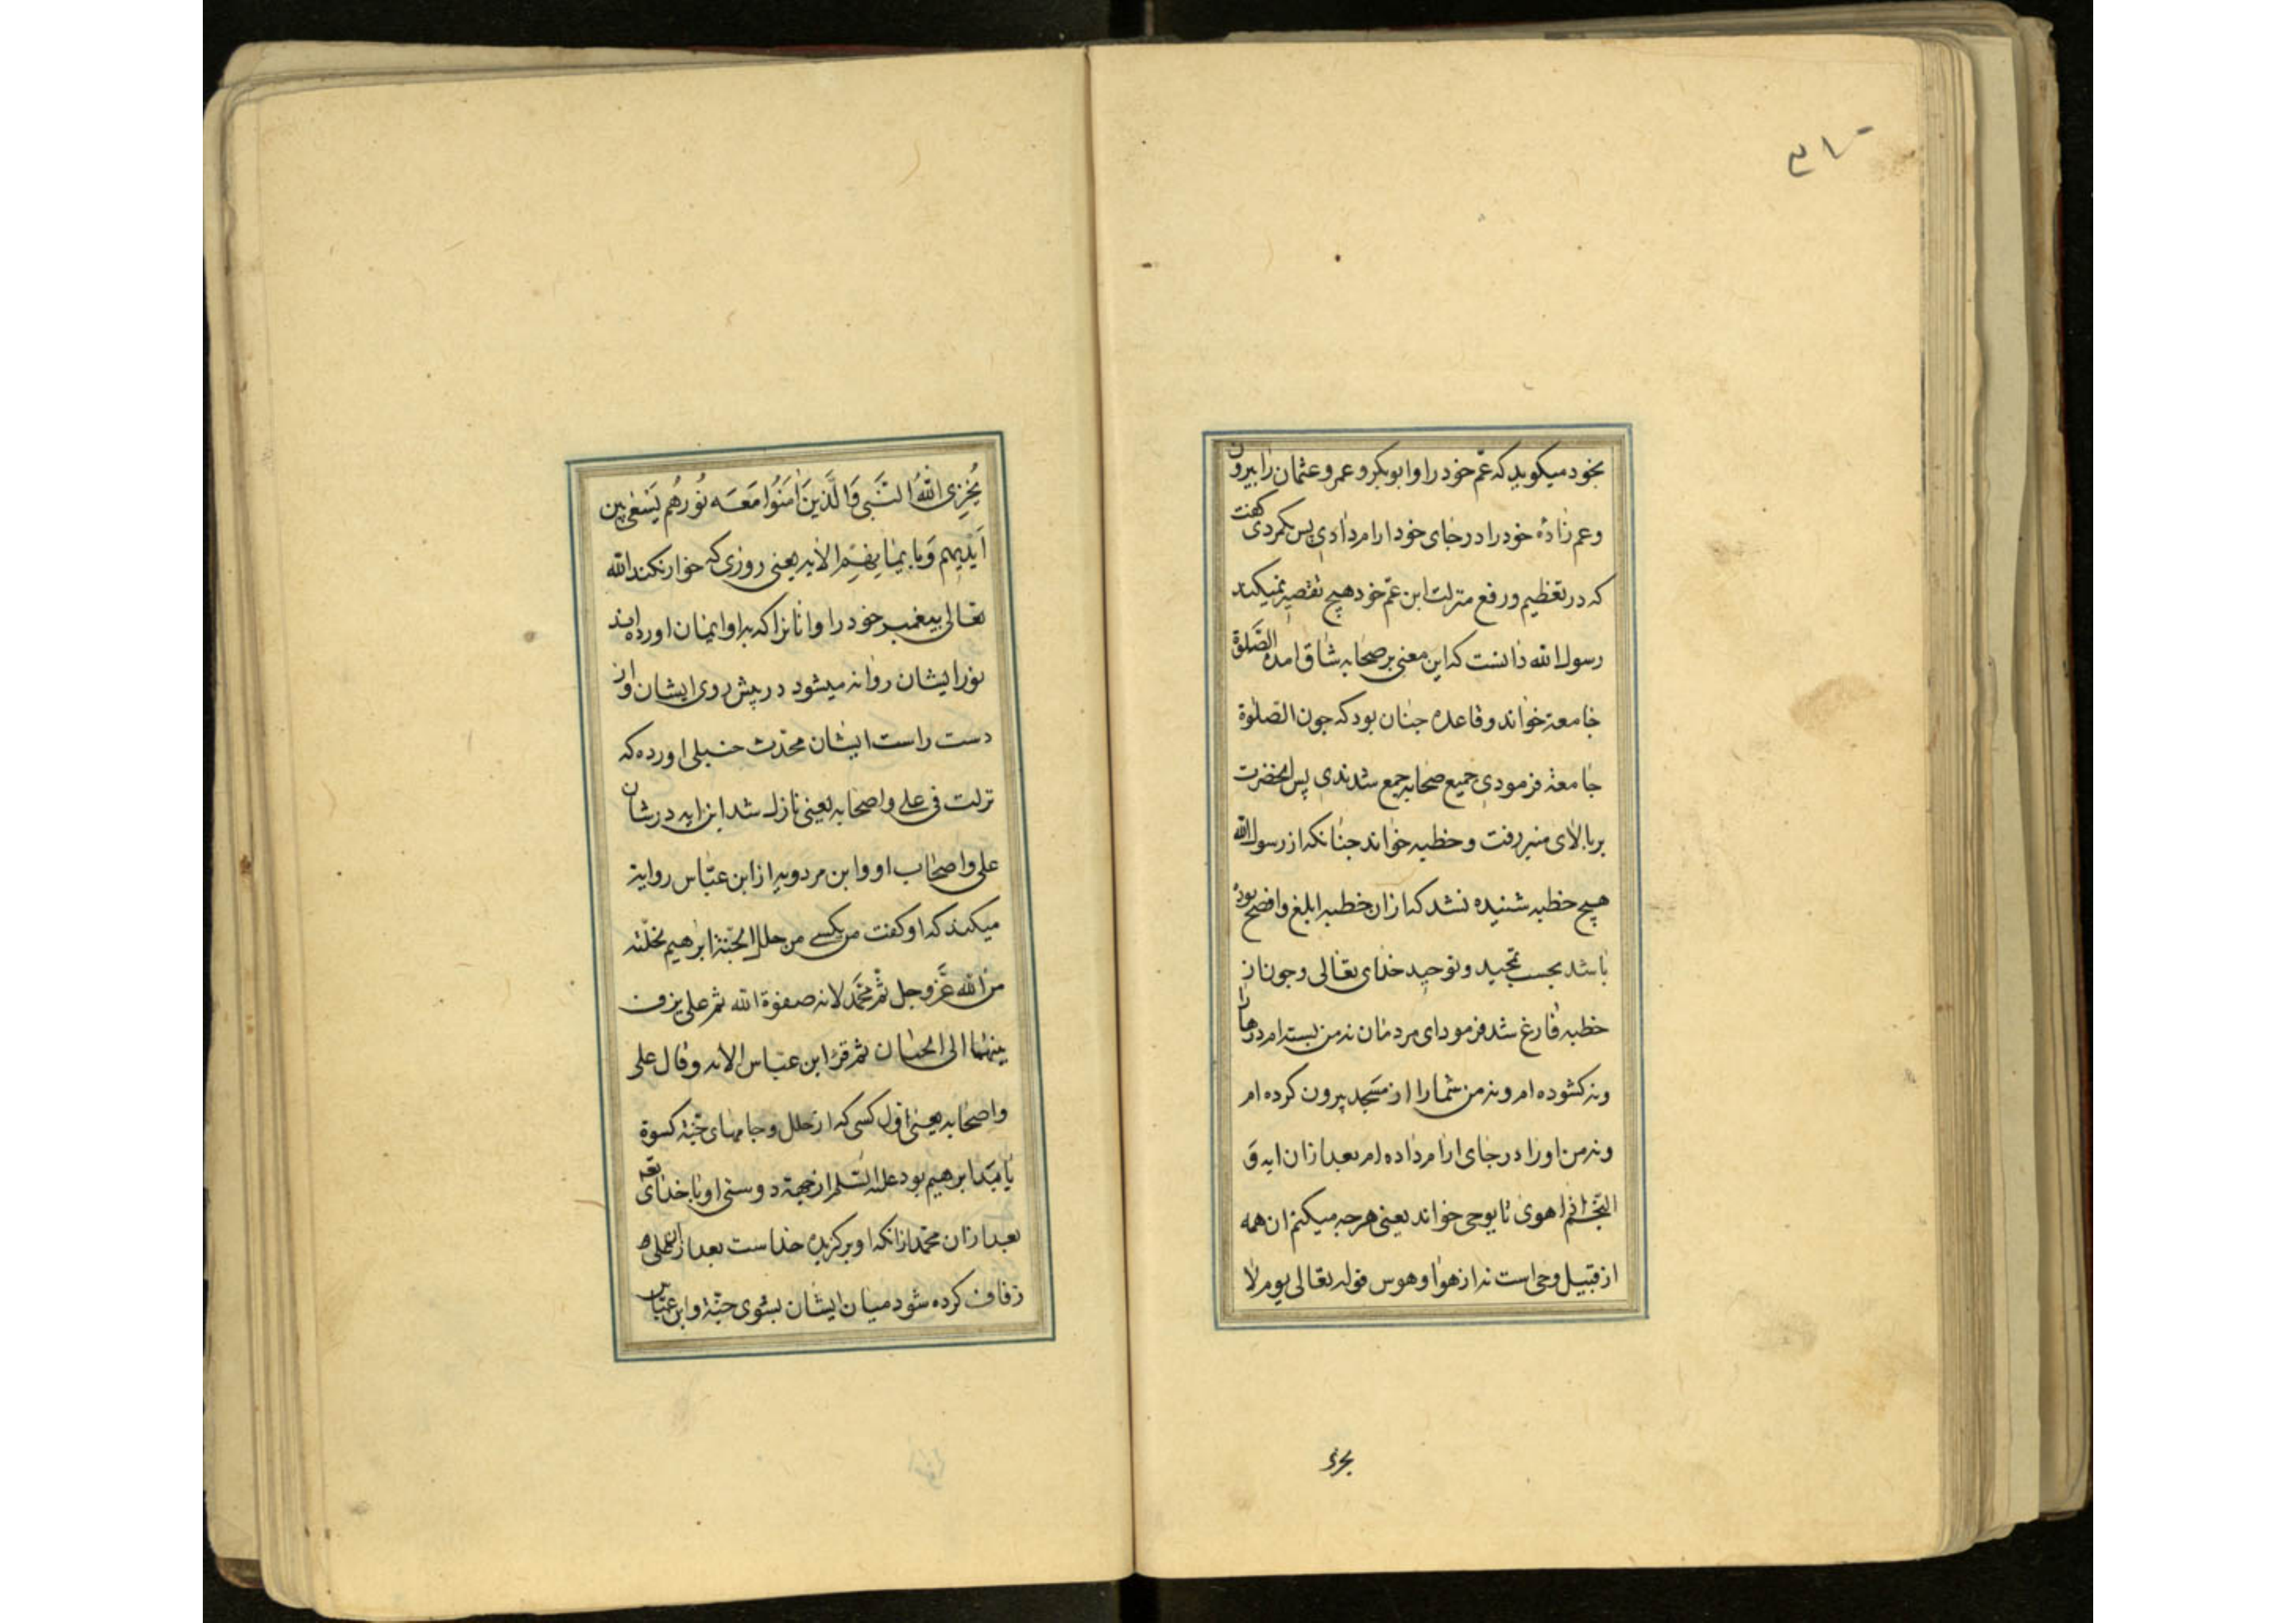 بخود میکوید که عم خود را و ابوبکر و عمر و عثمان را بیرون
و عم زاده خود را در جای خود ارام دادی پس کردی کفت
که در تعظیم و رفع منزلت ابن عم خود هیچ تقصیر نمیکند
رسول الله دانست که این معنی بر صحابه شاق امده الصلوة
جامعة خواند و قاعده جنان بود که جون الصلوة
جامعة فرمودی جمیع صحابه جمع شدندی پس انحضرت
بر بالای منبر رفت و خطبه خواند جنانکه از رسول الله
هیچ خطبه شنیده نشد که ازان خطبه ابلغ و افصح بوده
باشد بحسب تمجید و توحید خدای تعالی و جون از
خطبه فارغ شد فرمود ای مردمان نه من بسته ام درها را
و نه کشوده ام و نه من شما را از مسجد بیرون کرده ام
و نه من او را در جای ارام داده ام بعد ازان ایه و
النجم اذا هوی تا یوحی خواند یعنی هرجه میکنم ان همه
از قبیل وحی است نه از هوا و هوس قوله تعالی یوم لا
یخزی
یُخْزِی اللهُ النَّبی وَالَّذینَ اٰمَنُوا مَعَه نُورهُم یَسْعٰی بین
اَیْدیهِم وَبِاَیْمٰانِهِم الایه یعنی روزی که خوار نکند الله
تعالی بیغمبر خود را و انانرا که براو ایمان اورده اند
نور ایشان روانه میشود در پیش روی ایشان و از
دست راست ایشان محدث حنبلی اورده که
نزلت فی علی و اصحابه یعنی نازل شد این ایه در شان
علی و اصحاب او و ابن مردویه از ابن عباس روایة
میکند که او کفت من یکسے من حلل الجنة ابرهیم بخلته
من الله عَزّ وجل ثم محمّد لانه صفوة الله ثم علی یزف
بینهما الی الجنان ثم قرأ ابن عباس الایه و قال علی
و اصحابه یعنی اول کسی که از حلل و جامهای جنة کسوة
یابد ابرهیم بود علیه السلم از جهة دوستی او با خدای تعه
بعد ازان محمد ازانکه او برکزیده خداست بعد ازان علی ه
زفاف کرده شود میان ایشان بسوی جنة و ابن عباس